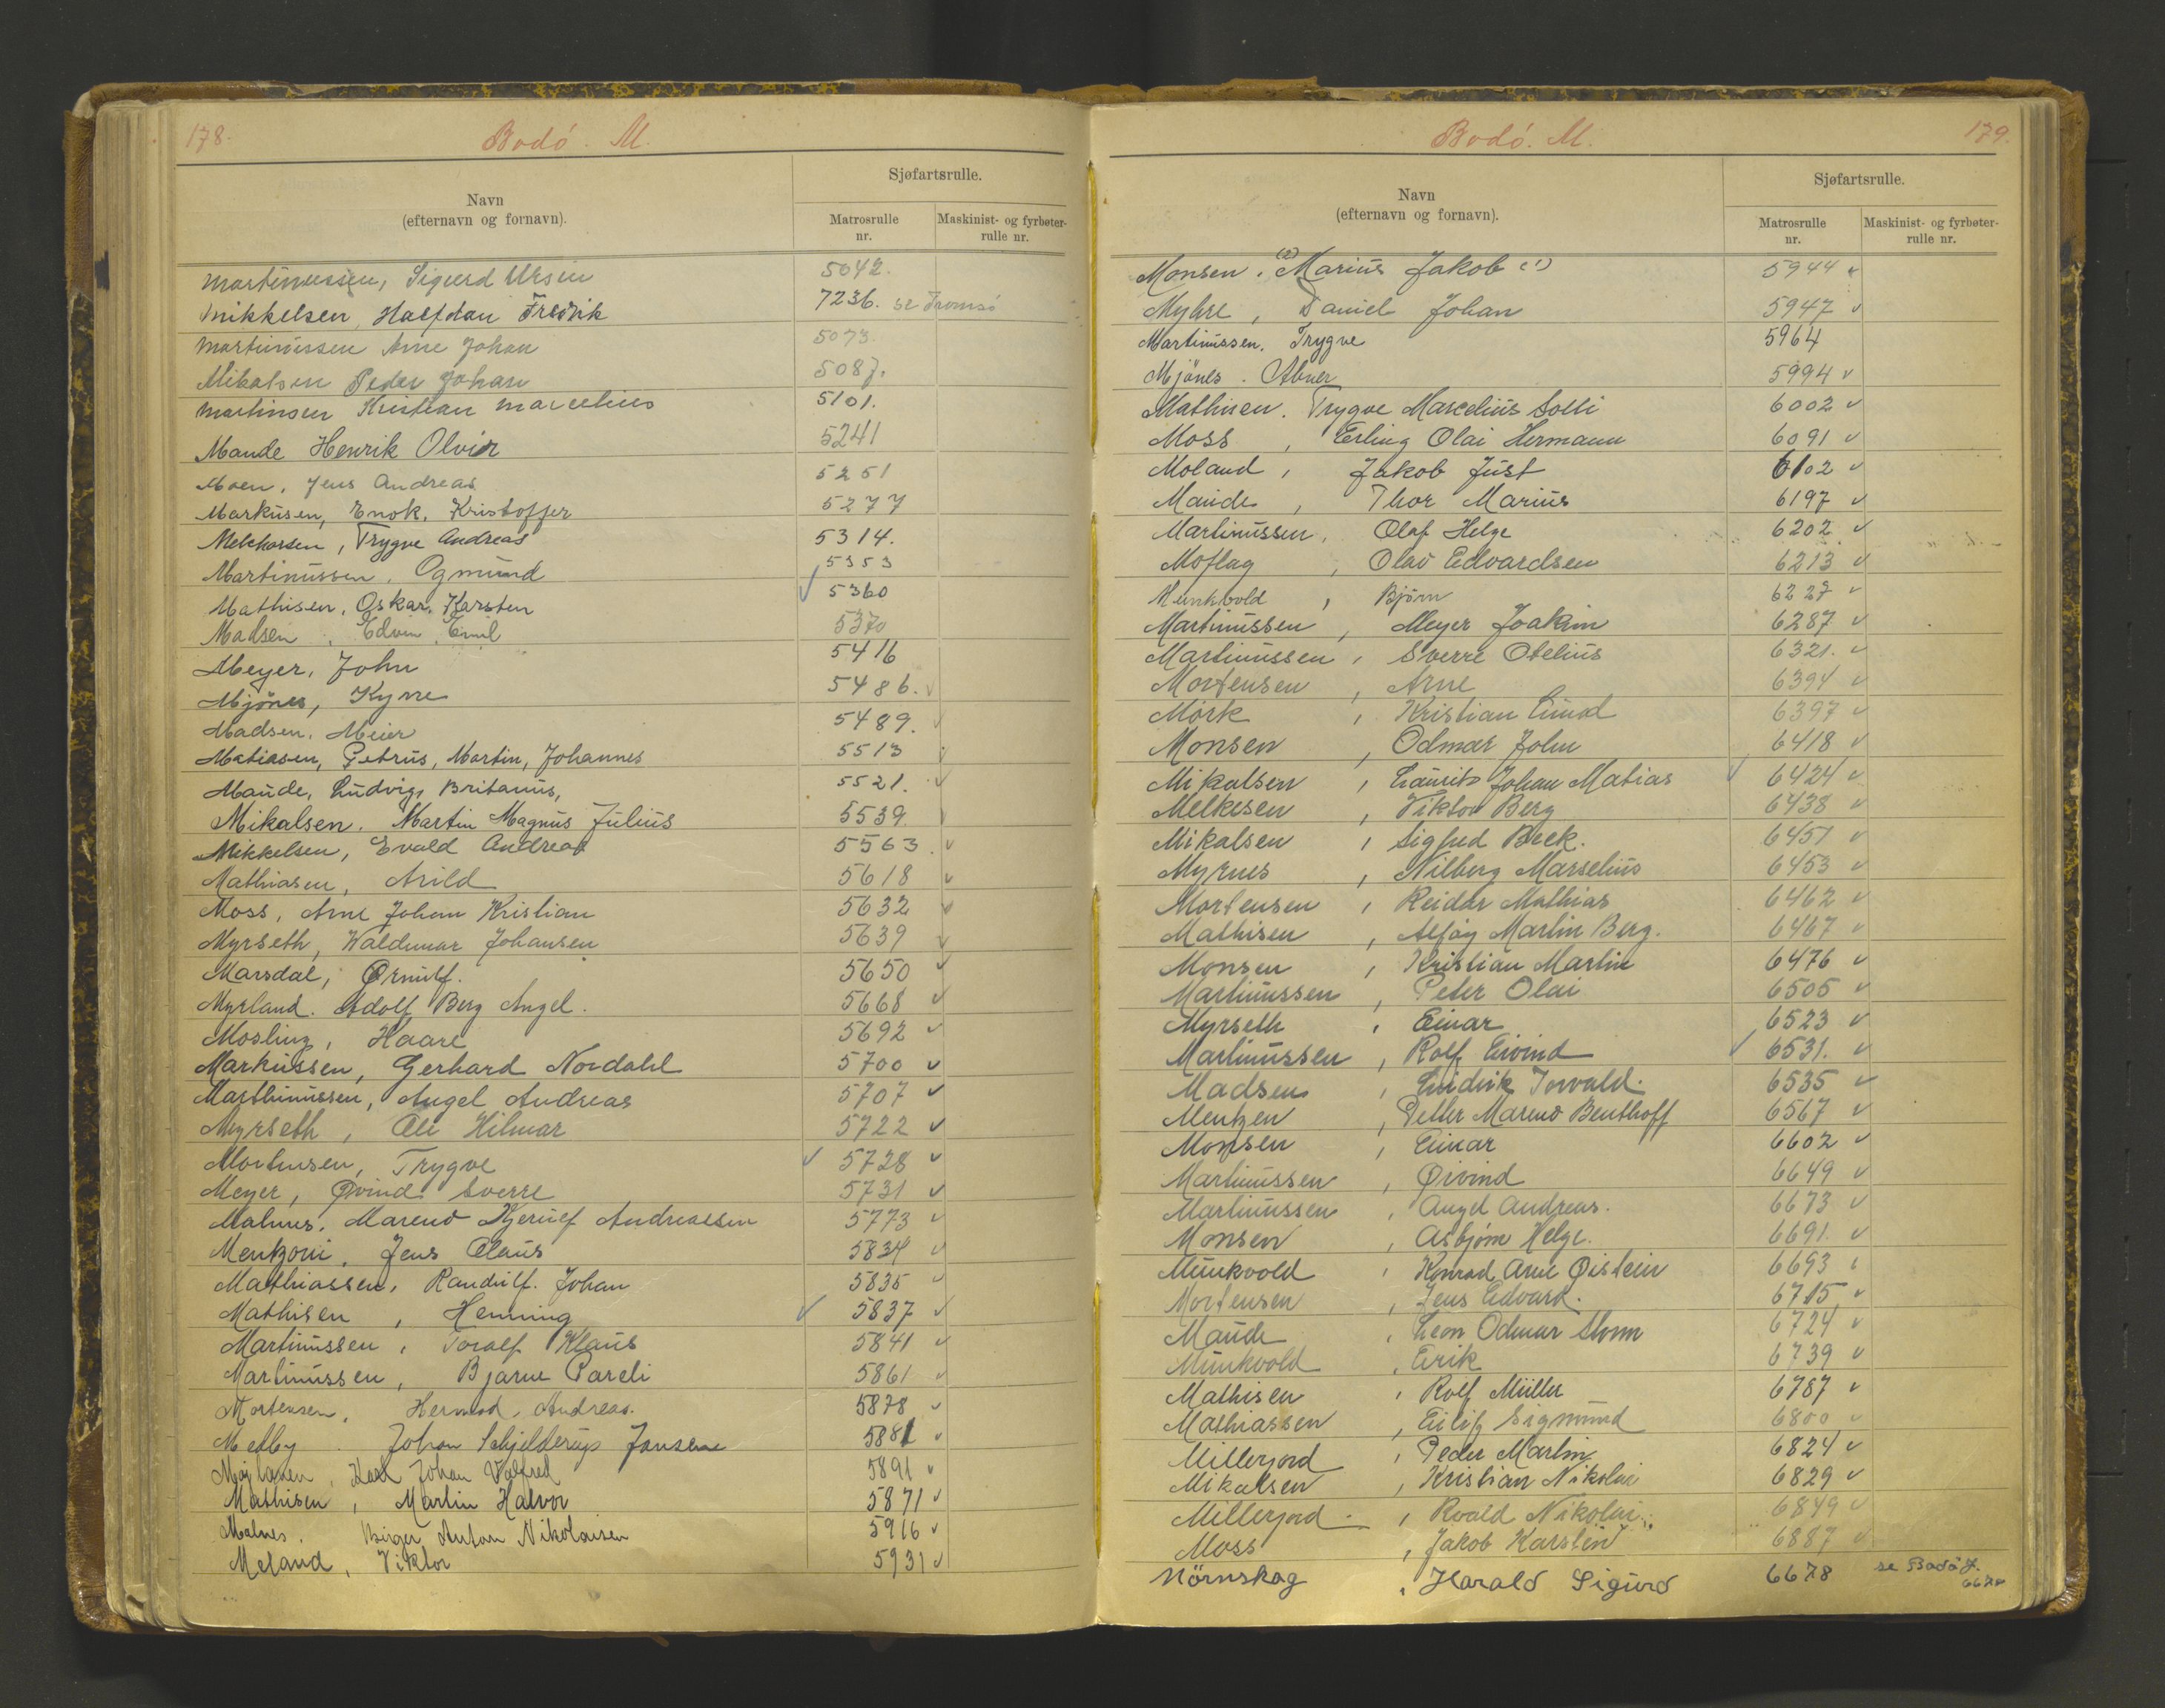 178.
Bodø. M.
Navn
(efternavn og fornavn).
Sjøfartsrulle.
Matrosrulle nr.
Maskinist- og fyrbøter-rulle nr.
Martinussen, Sigurd Ursin 5042.
Mikkelsen, Halfdan Fredrik 7236. se Tromsø
Martinussen Arne Johan 5073.
Mikalsen Peder Johan 5087.
Martinsen Kristian Marcelius 5101.
Maude Henrik Olvir 5241
Moen, Jens Andreas 5251
Markusen, Enok, Kristoffer 5277
Melchorsen, Trygve Andreas 5314.
Martinussen, Ogmund 5353
Mathisen, Oskar, Karsten ✓ 5360
Madsen, Edvin, Emil 5370
Meyer, John 5416
Mjönes, Kyrre 5486. ✓
Madsen, Meier 5489. ✓
Matiasen, Petrus, Martin, Johannes 5513
Maude, Ludvig, Britanus, 5521. ✓
Mikalsen. Martin Magnus Julius 5539
Mikkelsen, Evald Andreas 5563. ✓
Mathiasen, Arild 5618 ✓
Moss, Arne Johan Kristian 5632 ✓
Myrseth, Waldemar Johansen 5639 ✓
Marsdal, Ørnulf. 5650 ✓
Myrland. Adolf Berg Angel. 5668 ✓
Mosling, Haare 5692 ✓
Markussen, Gerhard Nordahl 5700 ✓
Marthinussen, Angel Andreas 5707 ✓
Myrseth, Ole Hilmar 5722 ✓
Mortensen, Trygve ✓ 5728 ✓
Meyer, Øvind Sverre 5731 ✓
Malnes, Mareno Andreassen 5773 ✓
Mentzoni, Jens Claus 5834 ✓
Mathiassen, Randulf. Johan 5835 ✓
Mathisen, Henning ✓ 5837 ✓
Martinussen, Toralf Klaus 5841 ✓
Martinussen, Bjarne Pareli 5861 ✓
Mortensen, Hermod, Andreas. 5878 ✓
Medby. Johan Schjelderup Jensen 5881 ✓
Karl Johan Valfred 5891 ✓
Mathisen, Martin Halvor 5871 ✓
Malnes. Birger Anton Nikolaisen 5916 ✓
Meland, Viktor 5931 ✓
Bodø. M.
179.
Navn
(efternavn og fornavn).
Sjøfartsrulle.
Matrosrulle nr.
Maskinist- og fyrbøter-rulle nr.
Monsen, (2) Marius Jakob (1) 5944 ✓
Myhre, Daniel Johan 5947 ✓
Martinussen, Trygve 5964
Mjönes. Abner 5994 ✓
Mathisen. Trygve Marcelius Solli 6002 ✓
Moss, Erling Olai Hermann 6091 ✓
Moland, Jakob Just 6102 ✓
Maude, Thor Marius 6197 ✓
Martinussen, Olaf Helge 6202 ✓
Moflag, Olav Edvardsen 6213 ✓
Munkvold, Bjørn 6227 ✓
Martinussen, Meyer Joakim 6287 ✓
Martinussen, Sverre Otelius 6321. ✓
Mortensen, Arne 6394 ✓
Mörk, Kristian Einod 6397 ✓
Monsen, Odmar John 6418 ✓
Mikalsen, Laurits Johan Matias ✓ 6424 ✓
Melkesen, Viktor Berg 6438 ✓
Mikalsen, Sigfred Beck. 6451 ✓
Myrnes, Nilberg Marselius 6453 ✓
Mortensen, Reidar Mathias 6462 ✓
Mathisen, Alføy Martin Berg. 6467 ✓
Monsen, Kristian Martin 6476 ✓
Martinussen, Peter Olai 6505 ✓
Myrseth, Einar 6523 ✓
Martinussen, Rolf Eivind ✓ 6531. ✓
Madsen, Torvald. 6535 ✓
Mentzen, Petter Mareno Benthoff 6567 ✓
Monsen, Einar 6602 ✓
Martinussen, Øivind 6649 ✓
Martinussen, Angel Andreas. 6673 ✓
Monsen, Asbjørn Helge. 6691. ✓
Munkvold, Konrad Arne Øistein 6693
Mortensen, Jens Edvard. 6715 ✓
Maude, Leon Odmar Storm 6724 ✓
Munkvold, Erik 6739 ✓
Mathisen, Rolf Müller 6787 ✓
Mathiassen, Eilif Sigmund 6800 ✓
Millerjord, Peder Martin 6824 ✓
Mikalsen, Kristian Nikolai 6829 ✓
Millerjord, Roald Nikolai 6849 ✓
Moss, Jakob Karstein 6887 ✓
Mörnskag, Harald Sigurd 6678 se Bodø